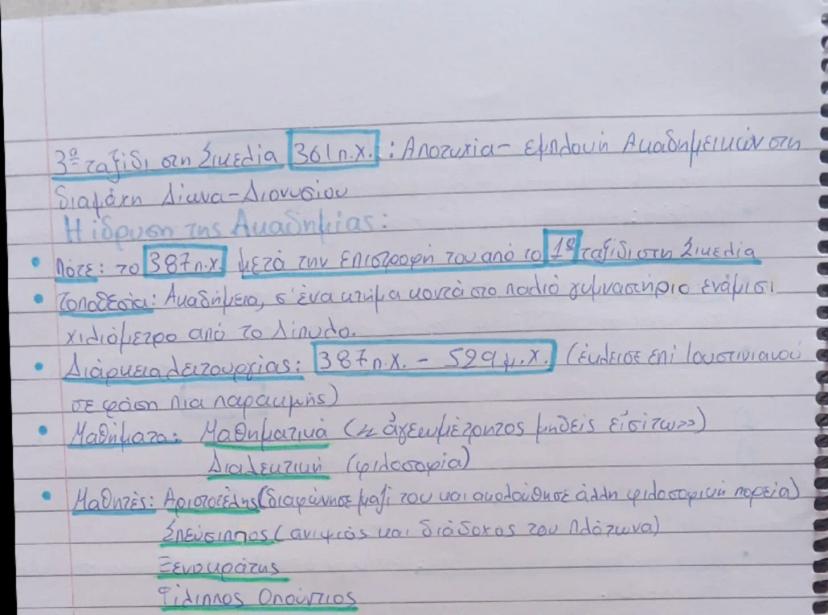 3ο ταξίδι στη Σικελία 361 π.χ. : Αποτυχία - εμπλοκή Ακαδημεικών στη
διαμάχη Δίωνα-Διονυσίου
Η ίδρυση της Ακαδημίας:
• Πότε: το 387 π.χ. μετά την επιστροφή του από το 1ο ταξίδι στη Σικελία
• Τοποθεσία: Ακαδήμεια, σ' ένα κτήμα κοντά στο παλιό γυμναστήριο ενάμισι
χιλιόμετρο από το Δίπυλο.
• Διάρκεια λειτουργίας: 387 π.χ. - 529 μ.χ. (έκλεισε επί Ιουστινιανού
σε φάση πια παρακμής)
• Μαθήματα: Μαθηματικά (<< ἀγεωμέτρητος μηδείς εἰσίτω>>)
Διαλεκτική (φιλοσοφία)
• Μαθητές: Αριστοτέλης (διαφώνησε μαζί του και ακολούθησε άλλη φιλοσοφική πορεία)
Σπεύσιππος (ανιψιός και διάδοχος του Πλάτωνα)
Ξενοκράτης
Φίλιππος Οπούντιος